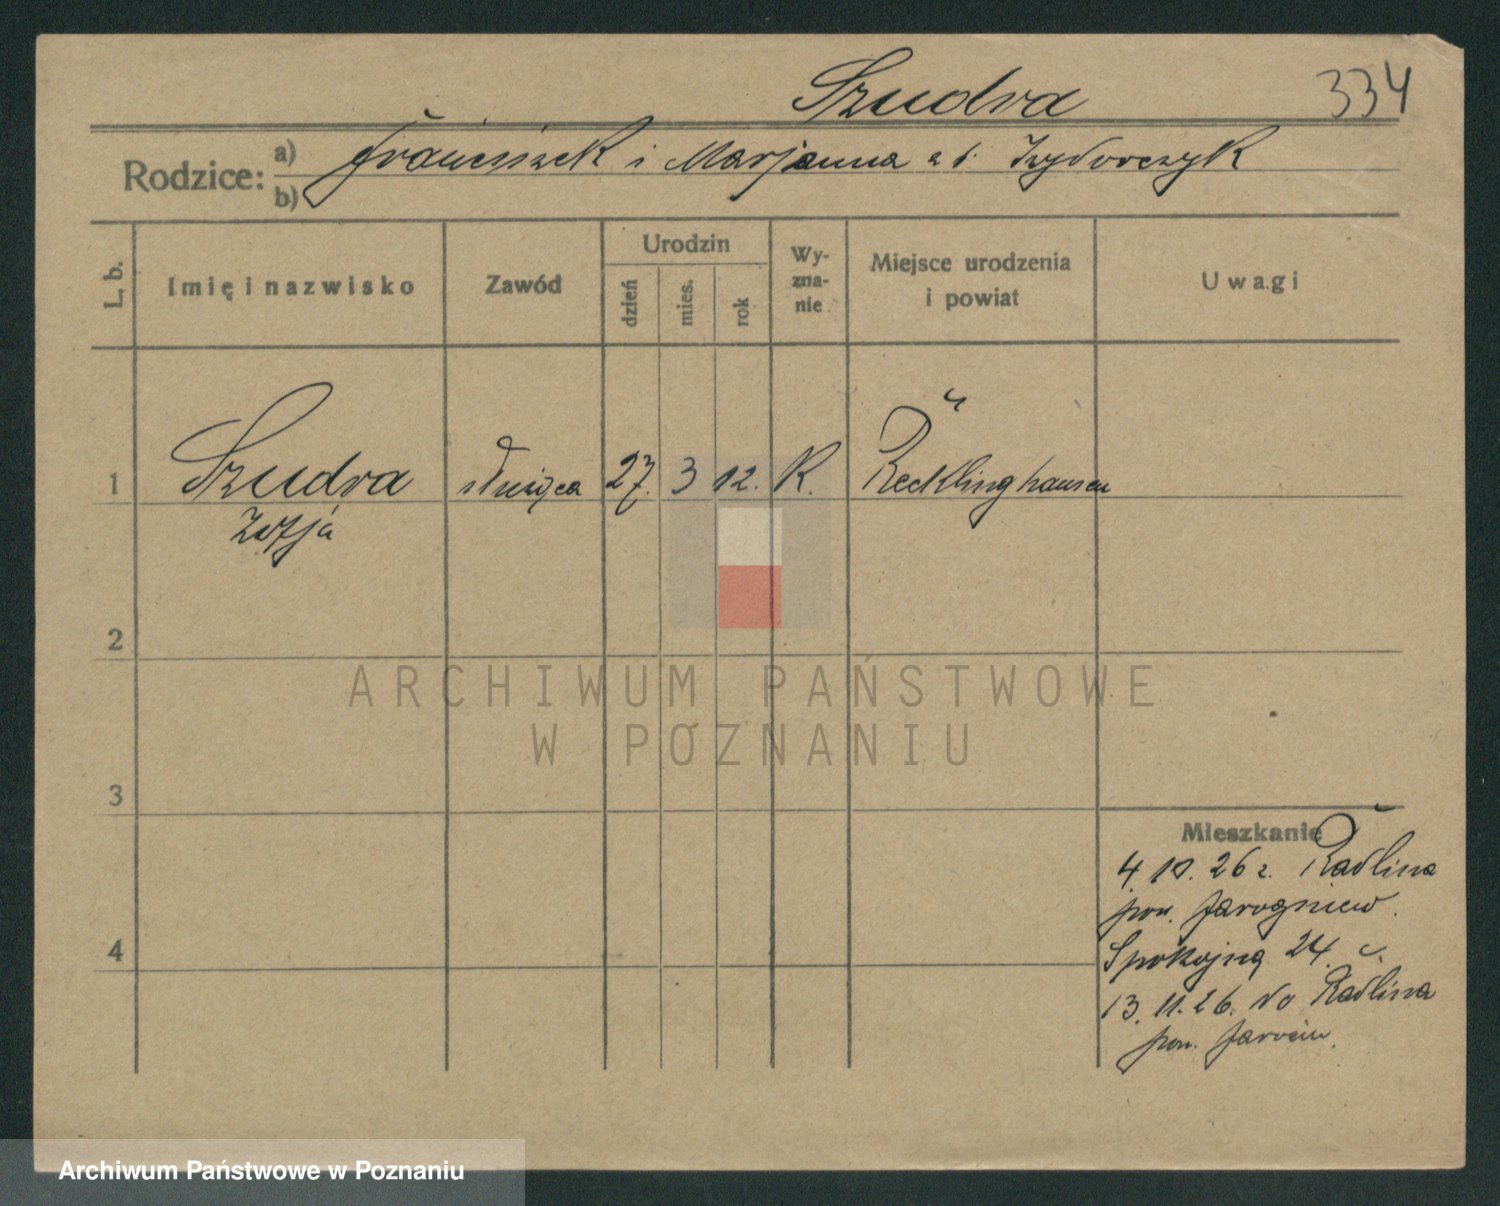 Szudra 334
Rodzice: a) Franciszek i Marjanna z d. Izydorczyk
b)
L. b. Imię i nazwisko Zawód Urodzin dzień mies. rok Wyznanie Miejsce urodzenia i powiat Uwagi
1 Szudra służąca 27. 3 12. K. Recklinghausen
Zofja
2
3
Mieszkanie
4.10.26 z Radlina
pow. Jarogniew.
4 Spokojną 24.
13.11.26. do Radlina
pow. Jarocin.
ARCHIWUM PAŃSTWOWE
W POZNANIU
Archiwum Państwowe w Poznaniu